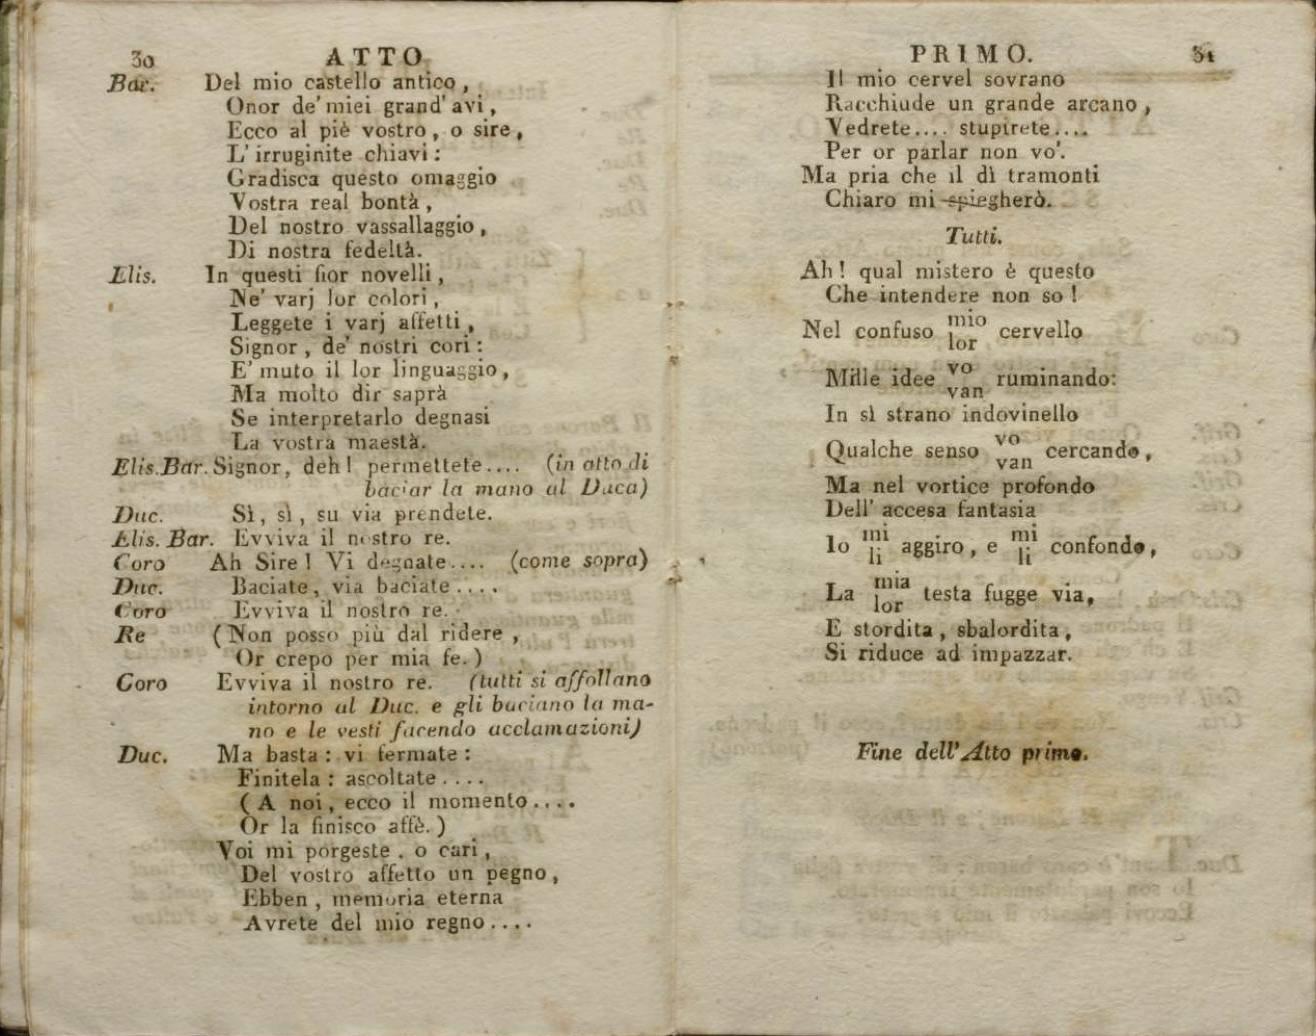 30 ATTO
Bar. Del mio castello antico,
Onor de' miei grand' avi,
Ecco al piè vostro, o sire,
L' irruginite chiavi:
Gradisca questo omaggio
Vostra real bontà,
Del nostro vassallaggio,
Di nostra fedeltà.
Elis. In questi fior novelli,
Ne' varj lor colori,
Leggete i varj affetti,
Signor, de' nostri cori:
E' muto il lor linguaggio,
Ma molto dir saprà
Se interpretarlo degnasi
La vostra maestà.
Elis. Bar. Signor, deh! permettete.... (in atto di
baciar la mano al Duca)
Duc. Sì, sì, su via prendete.
Elis. Bar. Evviva il nostro re.
Coro Ah Sire! Vi degnate.... (come sopra)
Duc. Baciate, via baciate....
Coro Evviva il nostro re.
Re (Non posso più dal ridere,
Or crepo per mia fe.)
Coro Evviva il nostro re. (tutti si affollano
intorno al Duc. e gli baciano la ma-
no e le vesti facendo acclamazioni)
Duc. Ma basta: vi fermate:
Finitela: ascoltate....
(A noi, ecco il momento....
Or la finisco affè.)
Voi mi porgeste, o cari,
Del vostro affetto un pegno,
Ebben, memoria eterna
Avrete del mio regno....
PRIMO. 31
Il mio cervel sovrano
Racchiude un grande arcano,
Vedrete.... stupirete....
Per or parlar non vo'.
Ma pria che il dì tramonti
Chiaro mi spiegherò.
Tutti.
Ah! qual mistero è questo
Che intendere non so!
Nel confuso mio lor cervello
Mille idee vo van ruminando:
In sì strano indovinello
Qualche senso vo van cercando,
Ma nel vortice profondo
Dell' accesa fantasia
Io mi li aggiro, e mi li confondo,
La mia lor testa fugge via,
E stordita, sbalordita,
Si riduce ad impazzar.
Fine dell' Atto primo.